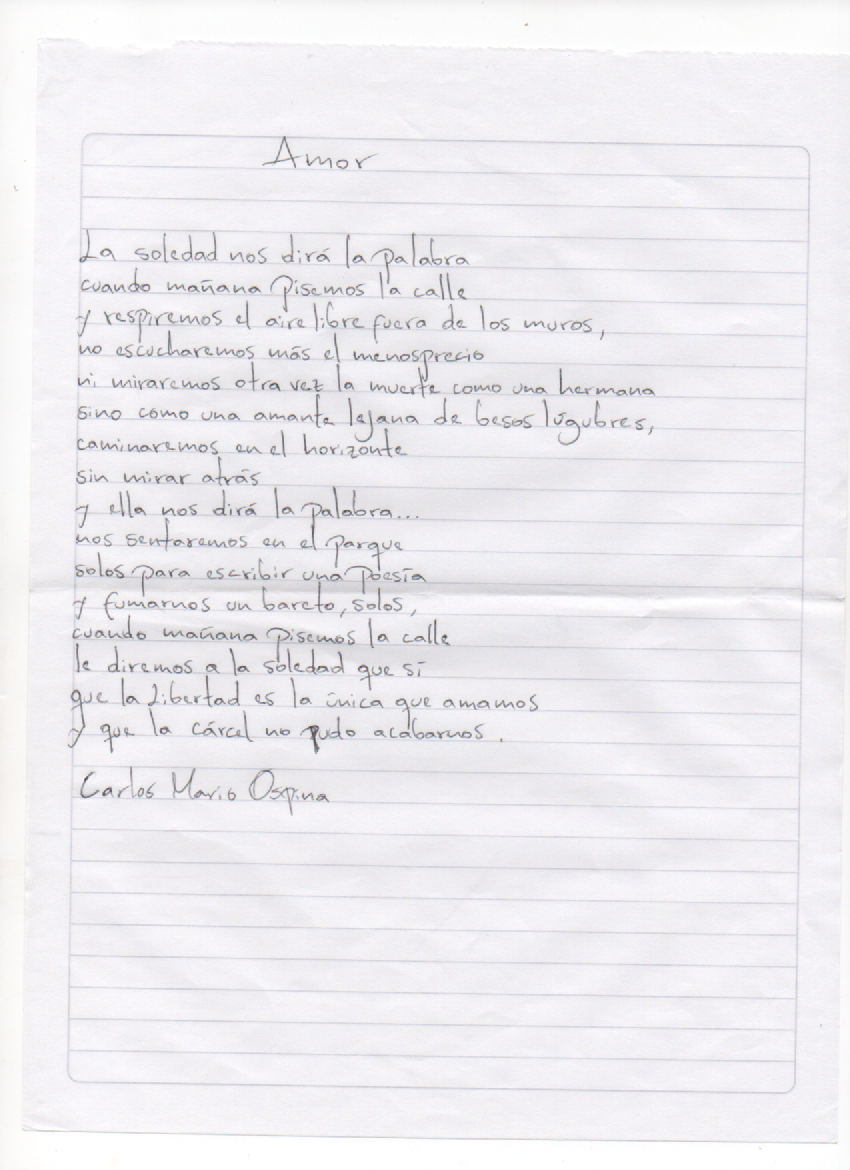 Amor
La soledad nos dirá la palabra
cuando mañana pisemos la calle
y respiremos el aire libre fuera de los muros,
no escucharemos más el menosprecio
ni miraremos otra vez la muerte como una hermana
sino como una amante lejana de besos lúgubres,
caminaremos en el horizonte
sin mirar atrás
y ella nos dirá la palabra...
nos sentaremos en el parque
solos para escribir una poesía
y fumarnos un bareto, solos,
cuando mañana pisemos la calle
le diremos a la soledad que sí
que la Libertad es la única que amamos
y que la cárcel no pudo acabarnos.
Carlos Mario Ospina